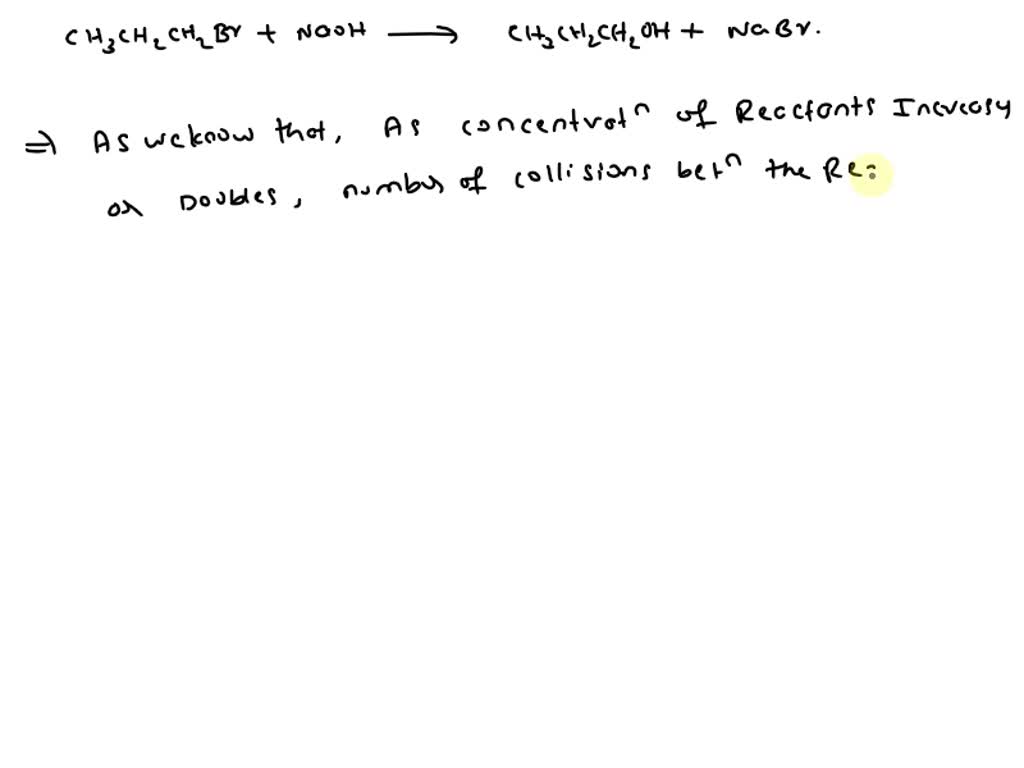 CH₃CH₂CH₂Br + NaOH ⟶ CH₃CH₂CH₂OH + NaBr.
⇒ As we know that, As concentratⁿ of Reactants Increasy
or Doubles, number of collisions betⁿ the Re